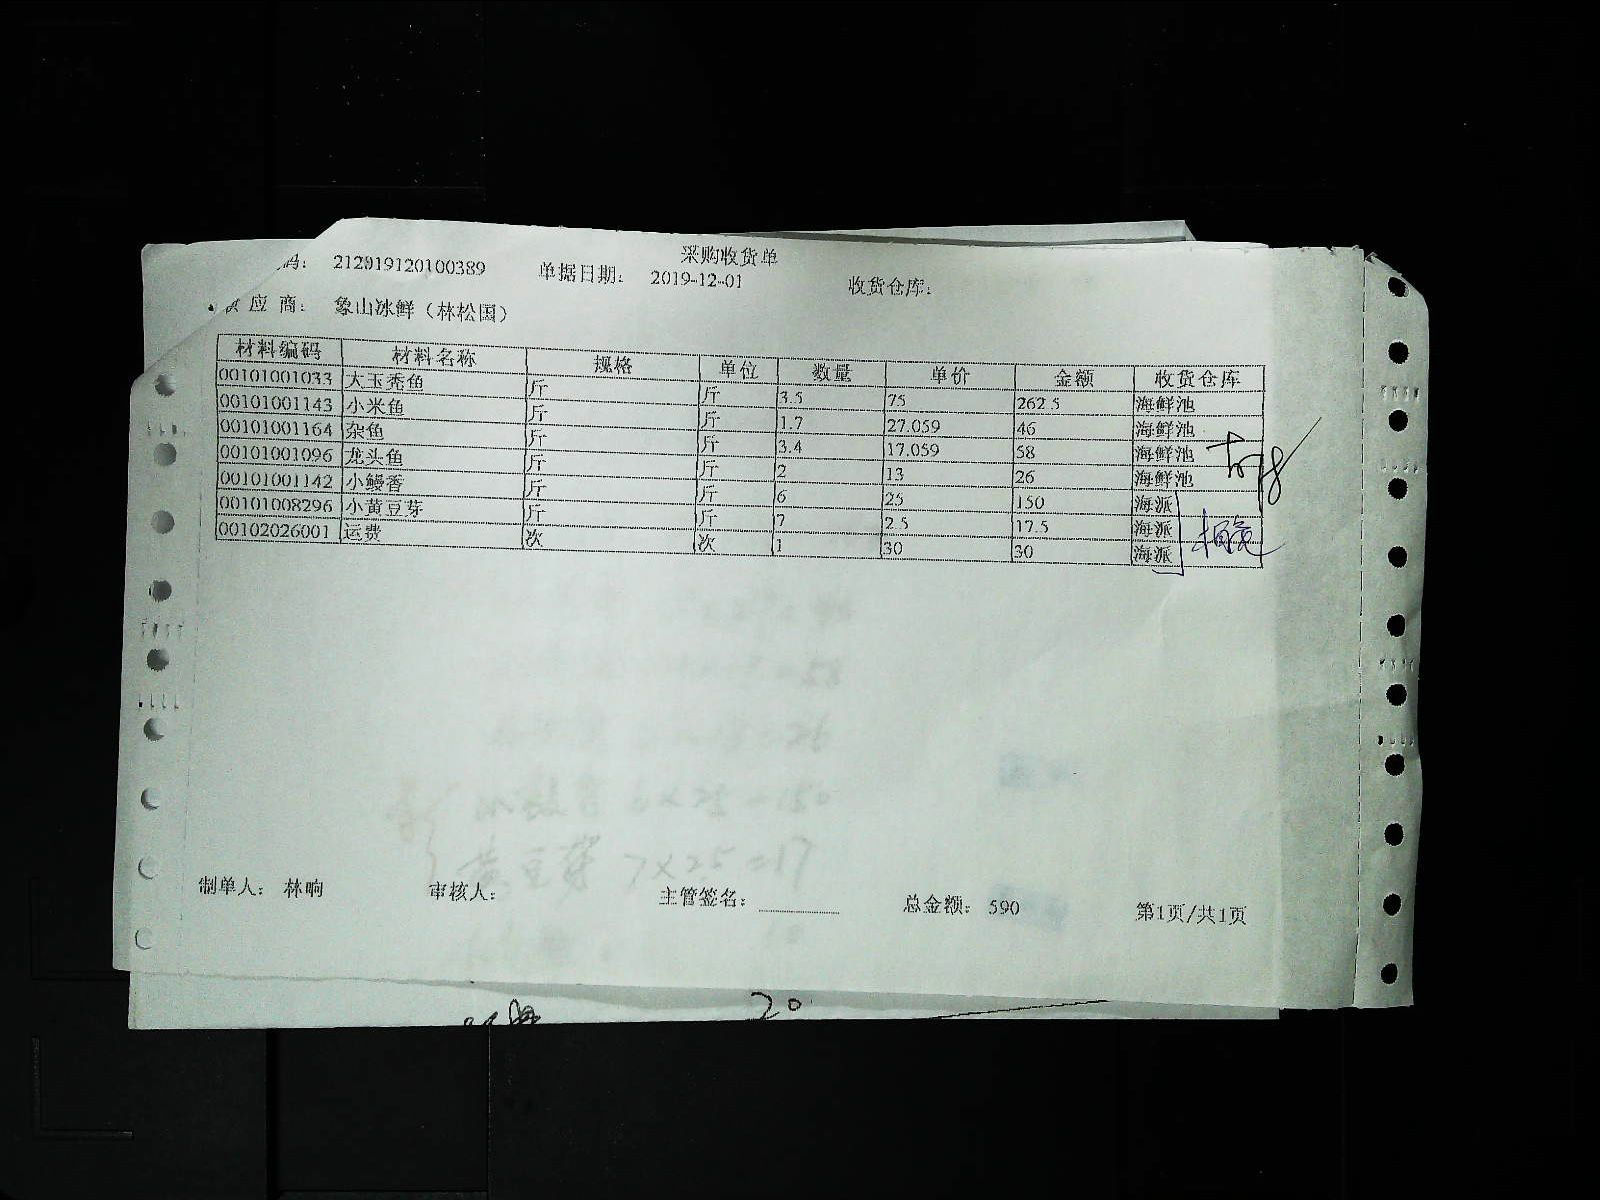 采购收货单
码： 212919120100389 单据日期： 2019-12-01 收货仓库：
应 商： 象山冰鲜（林松国）
材料编码 材料名称 规格 单位 数量 单价 金额 收货仓库
00101001033 大玉秃鱼 斤 斤 3.5 75 262.5 海鲜池
00101001143 小米鱼 斤 斤 1.7 27.059 46 海鲜池
00101001164 杂鱼 斤 斤 3.4 17.059 58 海鲜池
00101001096 龙头鱼 斤 斤 2 13 26 海鲜池
00101001142 小鳗香 斤 斤 6 25 150 海派
00101008296 小黄豆芽 斤 斤 7 2.5 17.5 海派
00102026001 运费 次 次 1 30 30 海派
黄豆芽 7×25=17
制单人： 林响 审核人： 主管签名： 总金额： 590 第1页/共1页
20